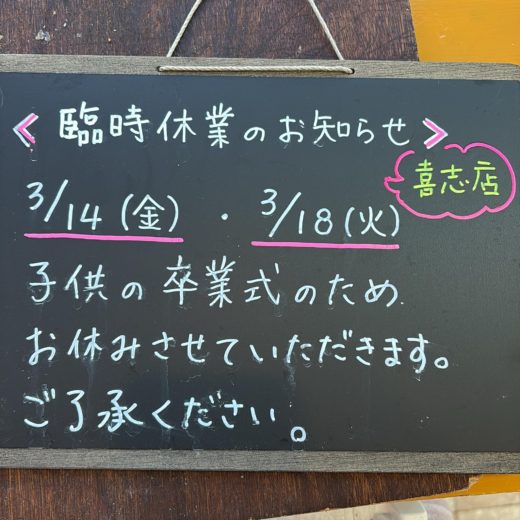 < 臨時休業のお知らせ >
喜志店
3/14(金)・3/18(火)
子供の卒業式のため
お休みさせていただきます。
ご了承ください。